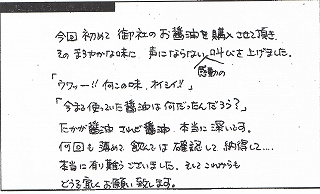 今回 初めて 御社の お醤油を 購入させて頂き
その まろやかな味に 声にならない 感動の 叫びを 上げました。
「ウワァー!! 何この味、オイシイ!!」
「今まで使っていた醤油は何だったんだろう?」
たかが醤油 されど醤油 本当に 深いです。
何回も 薄めて 飲んでは 確認して、納得して....
本当に有り難うございました。そして これからも
どうぞ宜しくお願い致します。